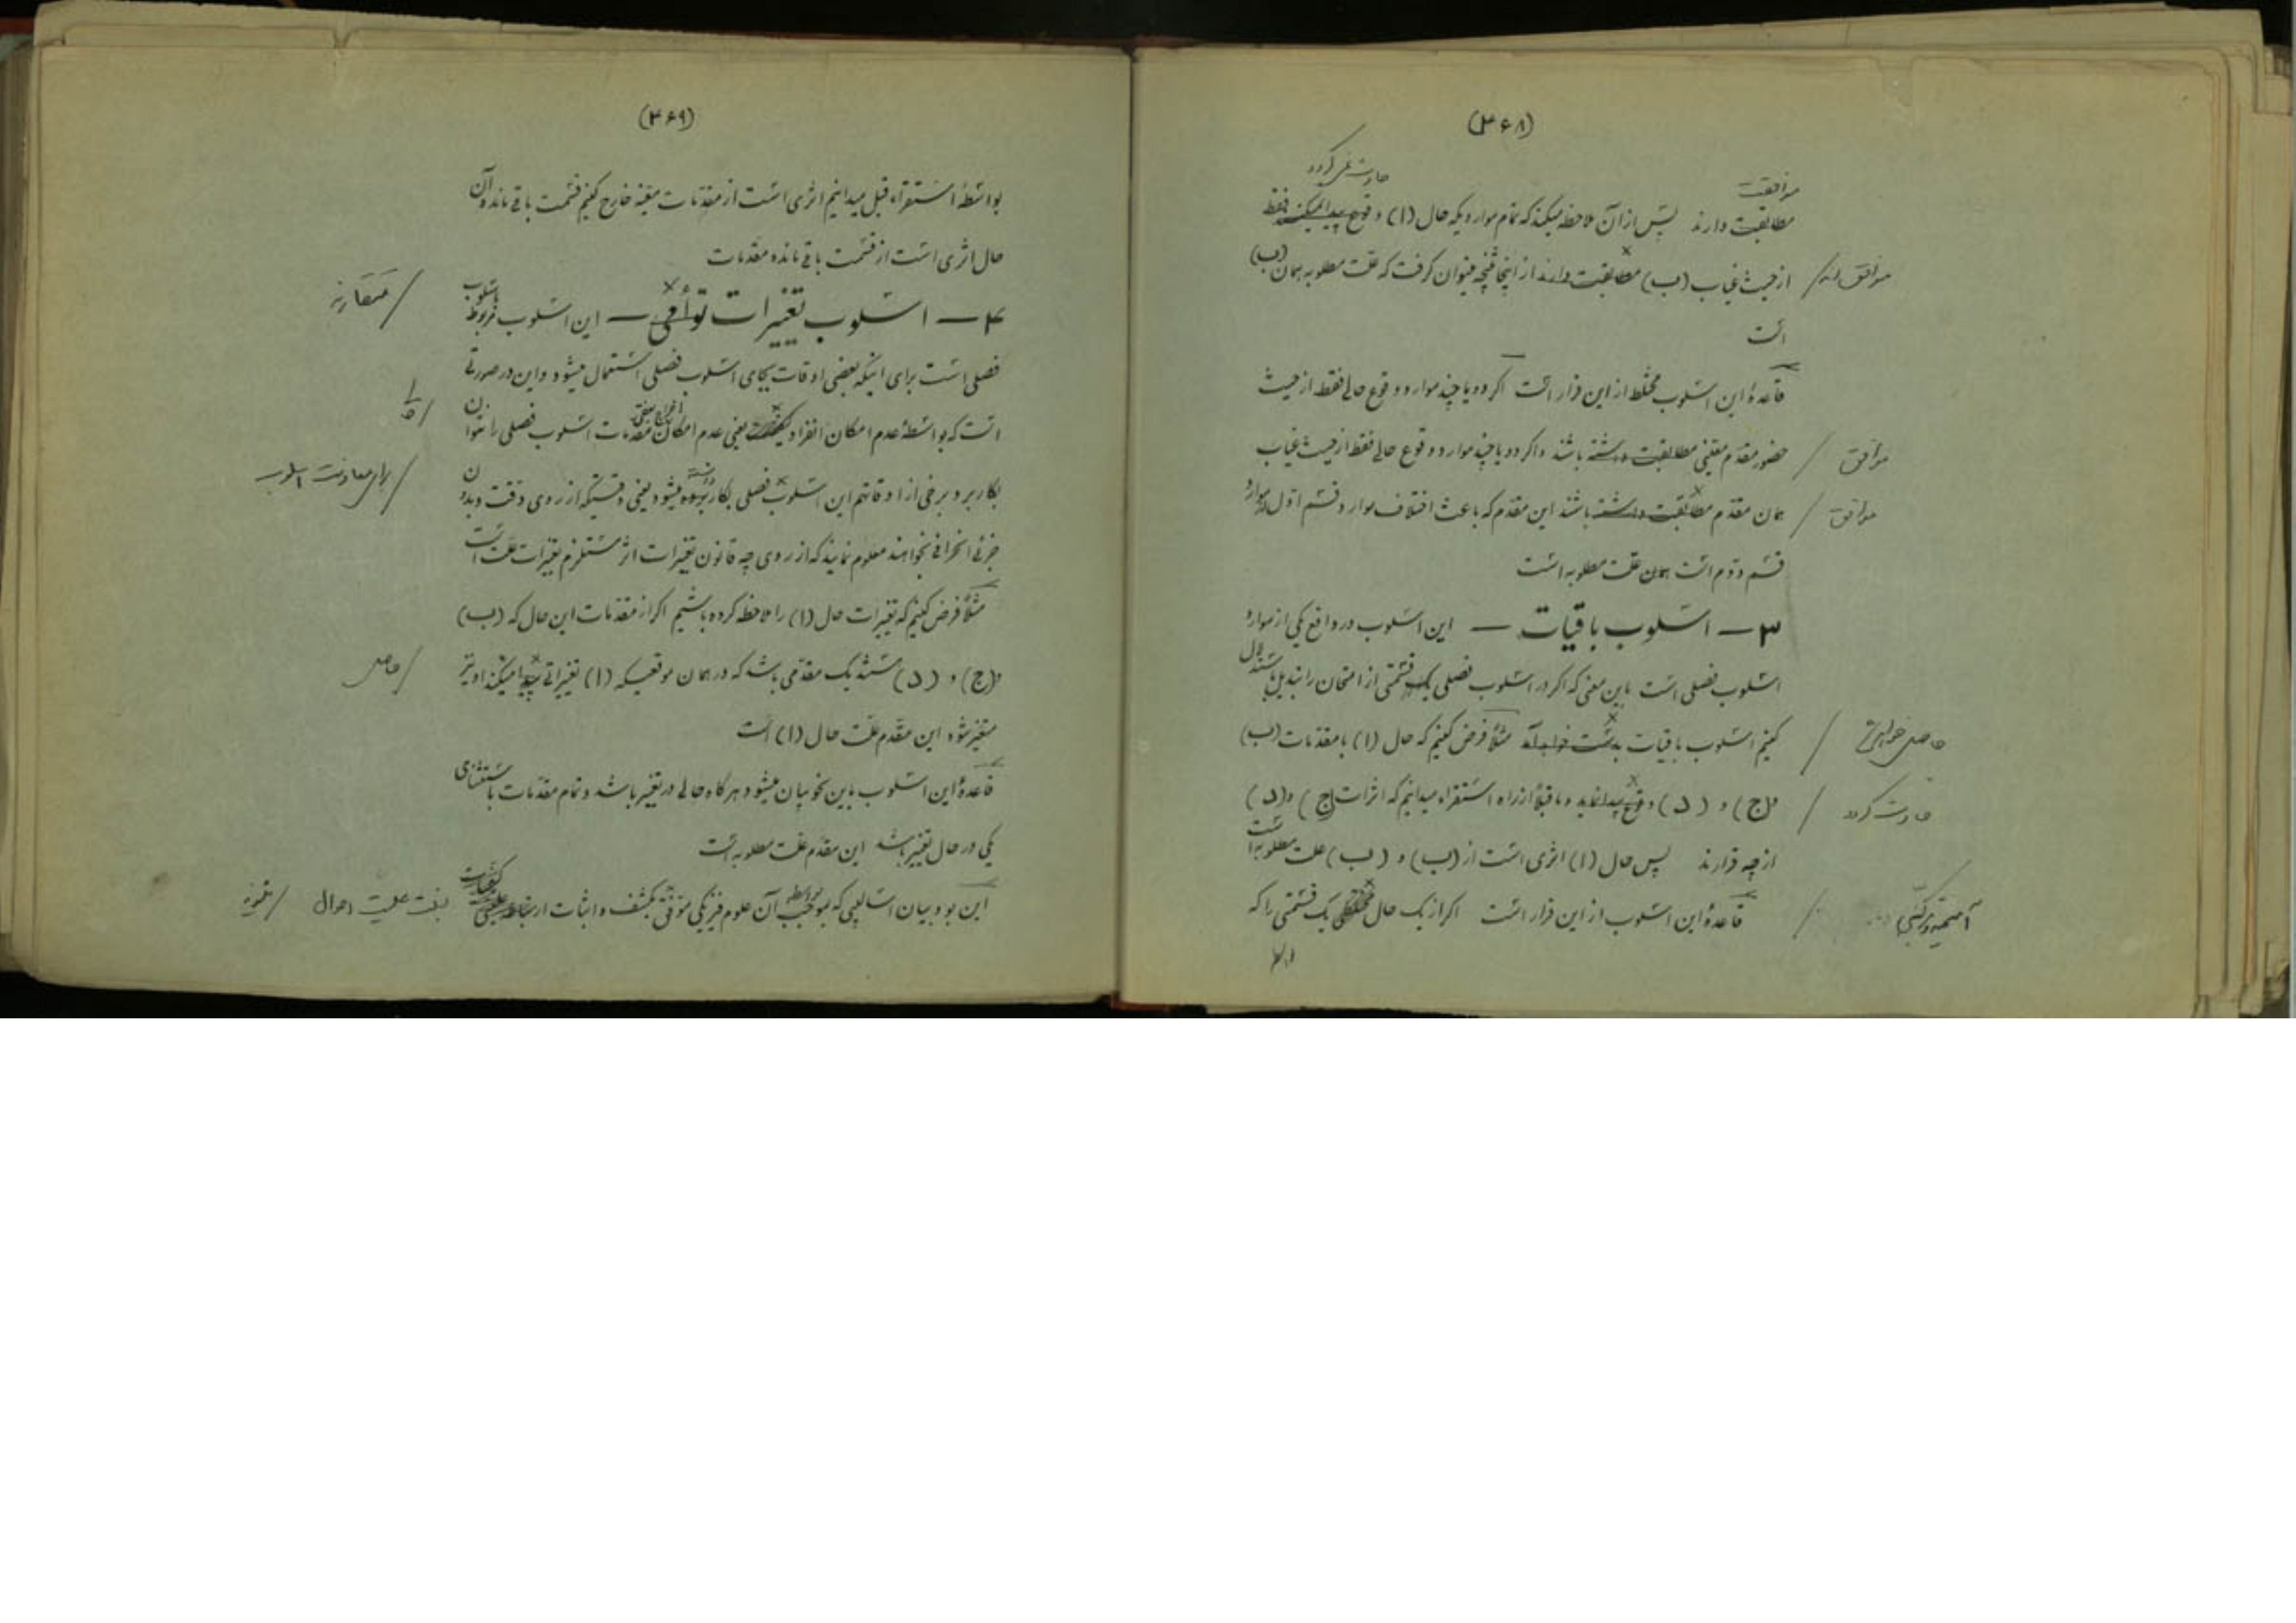 (۳۶۸)
حادث میگردد
موافقت
مطابقت دارند پس از آن ملاحظه میکند که تمام مواردیکه حال (ا) وقوع پیدا نمیکند فقط
از حیث غیاب (ب) مطابقت دارند از اینجا نتیجه میتوان گرفت که علت مطلوبه همان (ب)
است
قاعدهٔ این اسلوب مختلط از این قرار است اگر دو یا چند موارد وقوع حالی فقط از حیث
موافق
حضور مقدم معینی مطابقت داشته باشند و اگر دو یا چند موارد وقوع حالی فقط از حیث غیاب
موافق
همان مقدم مطابقت داشته باشند این مقدم که باعث اختلاف موارد قسم اول از موارد
قسم دوم است همان علت مطلوبه است
۳ — اسلوب باقیات — این اسلوب در واقع یکی از موارد
اسلوب فصلی است باین معنی که اگر در اسلوب فصلی یک قسمتی از امتحان را تبدیل باستدلال
کنیم اسلوب باقیات بدست خواهد آمد مثلاً فرض کنیم که حال (ا) با مقدمات (ب)
حادث گردد
و (ج) و (د) وقوع پیدا نماید و ما قبلاً از راه استقراء میدانیم که اثرات (ج) و (د)
از چه قرارند پس حال (ا) اثری است از (ب) و (ب) علت مطلوبه است
قاعدهٔ این اسلوب از این قرار است اگر از یک حال مختلطی یک قسمتی را که
(۳۶۹)
بواسطهٔ استقراء قبل میدانیم اثری است از مقدمات معینه خارج کنیم قسمت باقی مانده آن
حال اثری است از قسمت باقی مانده مقدمات
۴ — اسلوب تغییرات توأمی — این اسلوب مربوط باسلوب
متقارنه
فصلی است برای اینکه بعضی اوقات بجای اسلوب فصلی استعمال میشود و این در صورتی
است که بواسطهٔ عدم امکان انفراد یعنی عدم امکان اخراج بعضی مقدمات اسلوب فصلی را نتوان
بکار برد و برخی از اوقات هم این اسلوب فصلی بکار برده میشود یعنی وقتیکه از روی دقت و بدون
برای معاونت اسلوب
جزئی انحرافی بخواهند معلوم نمایند که از روی چه قانون تغییرات اثر مستلزم تغییرات علت است
مثلاً فرض کنیم که تغییرات حال (ا) را ملاحظه کرده باشیم اگر از مقدمات این حال که (ب)
و (ج) و (د) هستند یک مقدمی باشد که در همان موقعیکه (ا) تغییراتی پیدا میکند او نیز
حاصل
متغیر شود این مقدم علت حال (ا) است
قاعدهٔ این اسلوب باین نحو بیان میشود هرگاه حالی در تغییر باشد و تمام مقدمات باستثنای
یکی در حال تغییر باشد این مقدم علت مطلوبه است
این بود بیان اسالیبی که بموجب آن علوم فیزیکی موفق بکشف و اثبات ارتباط
نسبت علیت احوال